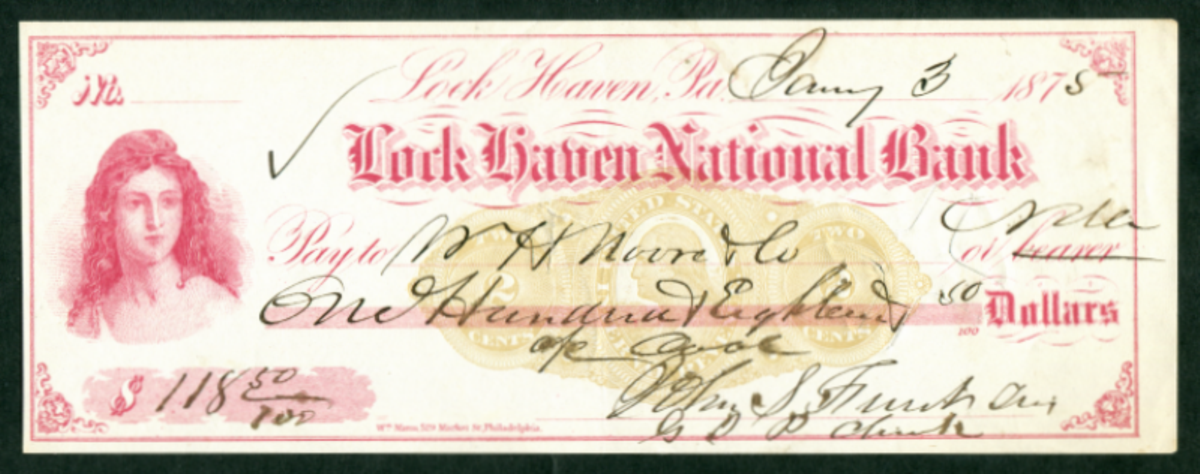 No.
Lock Haven, Pa. Jany 3 1875
Lock Haven National Bank
Pay to W H Moore & Co or bearer
order
One Hundred & Eighteen & 50/100 Dollars
$ 118 50/100
UNITED STATES
TWO TWO
2 2
CENTS CENTS
John S. Furst
Wm Mann, 529 Market St, Philadelphia.